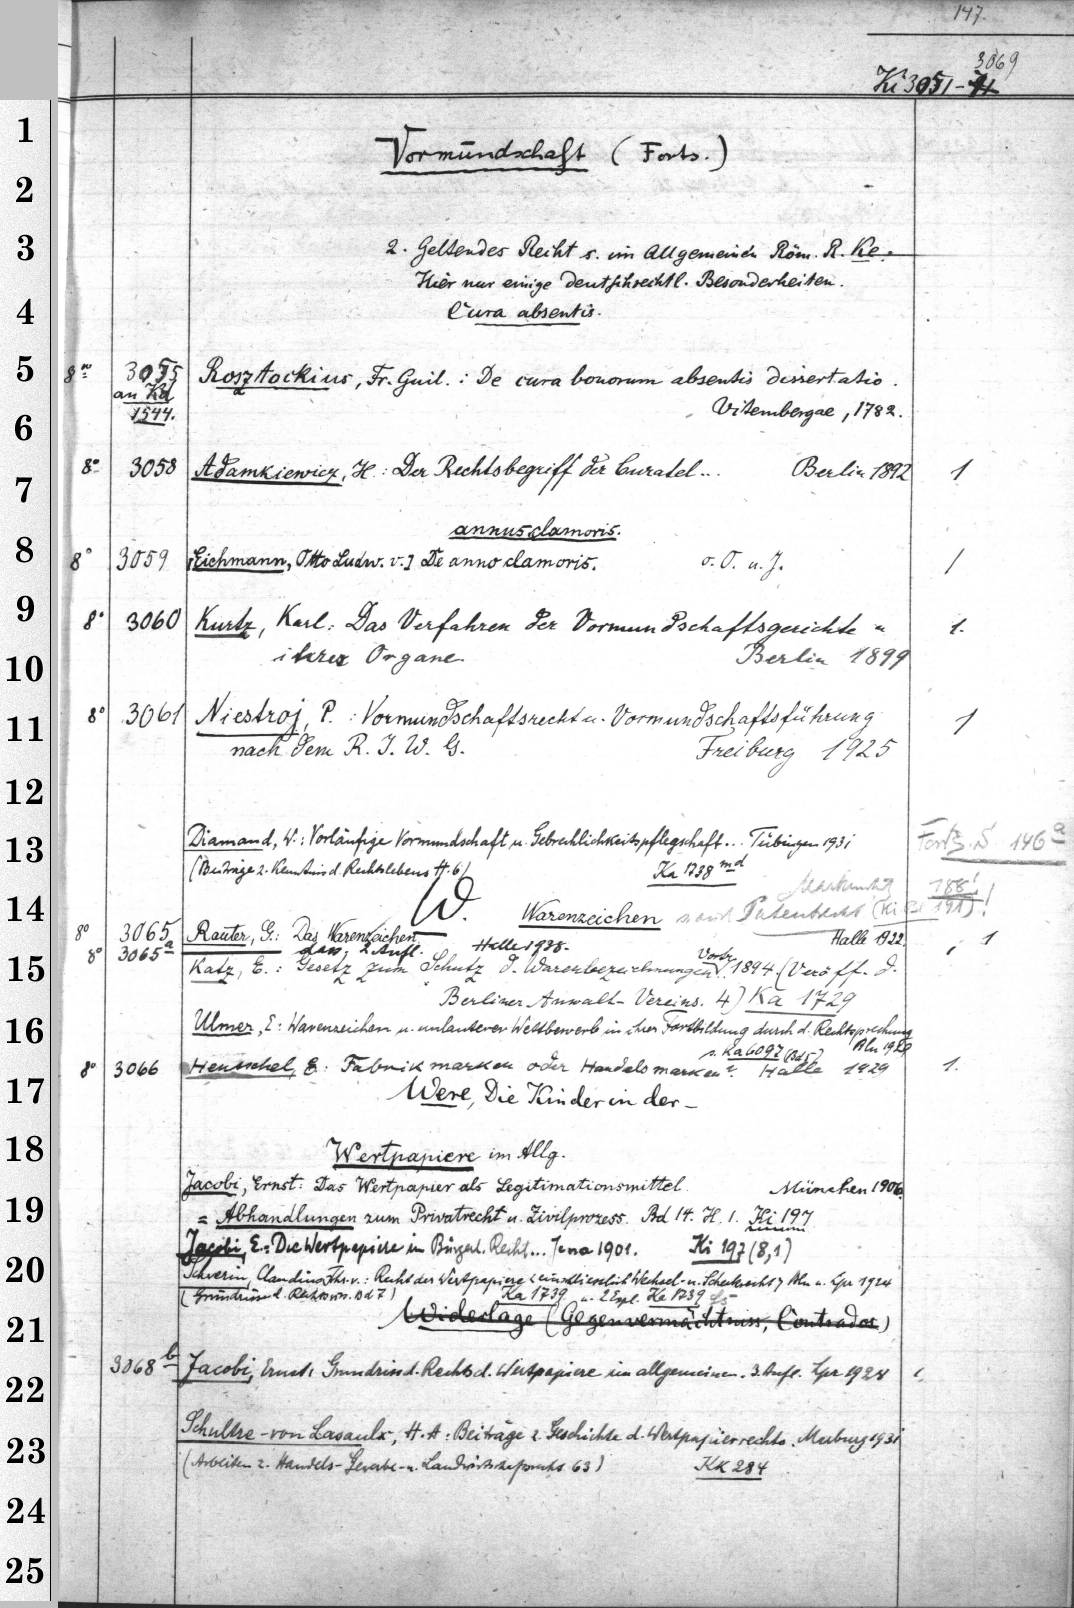 147.
3069
Ki 3051-71
1
Vormundschaft (Forts.)
2
3
2. Geltendes Recht s. im Allgemeinen Röm. R. Ke.
Hier nur einige deutschrechtl. Besonderheiten.
4
Cura absentis.
5
8° 3055 Rosztockius, Fr. Guil. : De cura bonorum absentis dissertatio.
an Kd
1544.
Vitembergae, 1782.
6
8° 3058 Adamkiewicz, H.: Der Rechtsbegriff der Curatel... Berlin 1892 1
7
annus clamoris.
8
8° 3059 [Eichmann, Otto Ludw. v.] De anno clamoris. o. O. u. J. 1
9
8° 3060 Kurtz, Karl: Das Verfahren der Vormundschaftsgerichte u 1.
10
ihrer Organe. Berlin 1899
8° 3061 Niestroj, P. : Vormundschaftsrecht u. Vormundschaftsführung 1
11
nach dem R. J. W. G. Freiburg 1925
12
13
Diamand, W.: Vorläufige Vormundschaft u. Gebrechlichkeitspflegschaft... Tübingen 1931 Forts. S. 146a
(Beiträge z. Kenntnis d. Rechtslebens H. 6) Ka 1738 md
14
W.
Warenzeichen und Patentrecht (Ki 191)!
188!
8° 3065 Rauter, G.: Das Warenzeichen Halle 1922 1
8° 3065a dass. 2. Aufl. Halle 1938.
15
Katz, E.: Gesetz zum Schutz d. Warenbezeichnungen. Vortr. 1894 (Veröff. d.
Berliner Anwalt-Vereins. 4) Ka 1729
16
Ulmer, E: Warenzeichen u. unlauterer Wettbewerb in ihrer Fortbildung durch d. Rechtsprechung
Bln 1929
s. Ka 6097 (Bd 5)
8° 3066 Henschel, E: Fabrikmarken oder Handelsmarken? Halle 1929 1.
17
Were, Die Kinder in der –
18
Wertpapiere im Allg.
Jacobi, Ernst: Das Wertpapier als Legitimationsmittel. München 1906
19
= Abhandlungen zum Privatrecht u. Zivilprozess. Bd 14. H. 1. Ki 197
Jacobi, E.: Die Wertpapiere im Bürgerl. Recht... Jena 1901. Ki 197 (8,1)
20
Schwerin, Claudius Frhr. v.: Recht der Wertpapiere (einschliesslich Wechsel- u. Scheckrecht) Bln u. Lpz 1924
(Grundrisse d. Rechtswiss. Bd 7) Ka 1739 u. 2 Expl. Ke 1739
21
Widerlage (Gegenvermächtniss, Contrados)
3068b Jacobi, Ernst: Grundriss d. Rechts d. Wertpapiere im allgemeinen. 3. Aufl. Lpz 1928
22
Schultze-von Lasaulx, H. A: Beiträge z. Geschichte d. Wertpapierrechts. Marburg 1931
23
(Arbeiten z. Handels- Gewerbe- u. Landwirtschaftsrecht 63) Kk 284
24
25